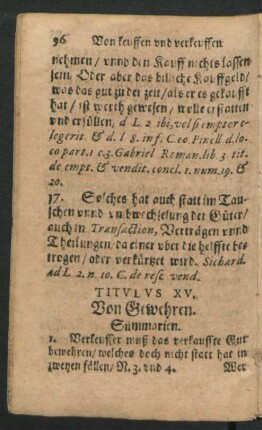 96 Von keuffen vnd verkeuffen
nehmen / vnnd den Kauff nichts lassen
sein / Oder aber das billiche Kauffgeld /
was das gut zu der zeit / als er es gekaufft
hat / ist werth gewesen / wolle erstatten
vnd erfüllen, d L 2 ibi, vel si emptor e-
legerit & d. l 8. inf. C. eo. Pinell d. lo-
co part. 1 c 3. Gabriel Roman. lib. 3. tit.
de empt. & vendit. concl. 1. num. 19. &
20.
17. Solches hat auch statt im Tau-
schen vnnd vmbwechselung der Güter /
auch in Transaction, Verträgen vnnd
Theilungen / da einer vber die helffte be-
trogen / oder verkürtzet wird. Sichard.
ad L. 2. n. 10. C. de resc vend.
TITVLVS XV.
Von Gewehren.
Summarien.
1. Verkeuffer muß das verkauffte Gut
bewehren / welches doch nicht statt hat in
zweyen fällen / N. 3. vnd 4. Wer